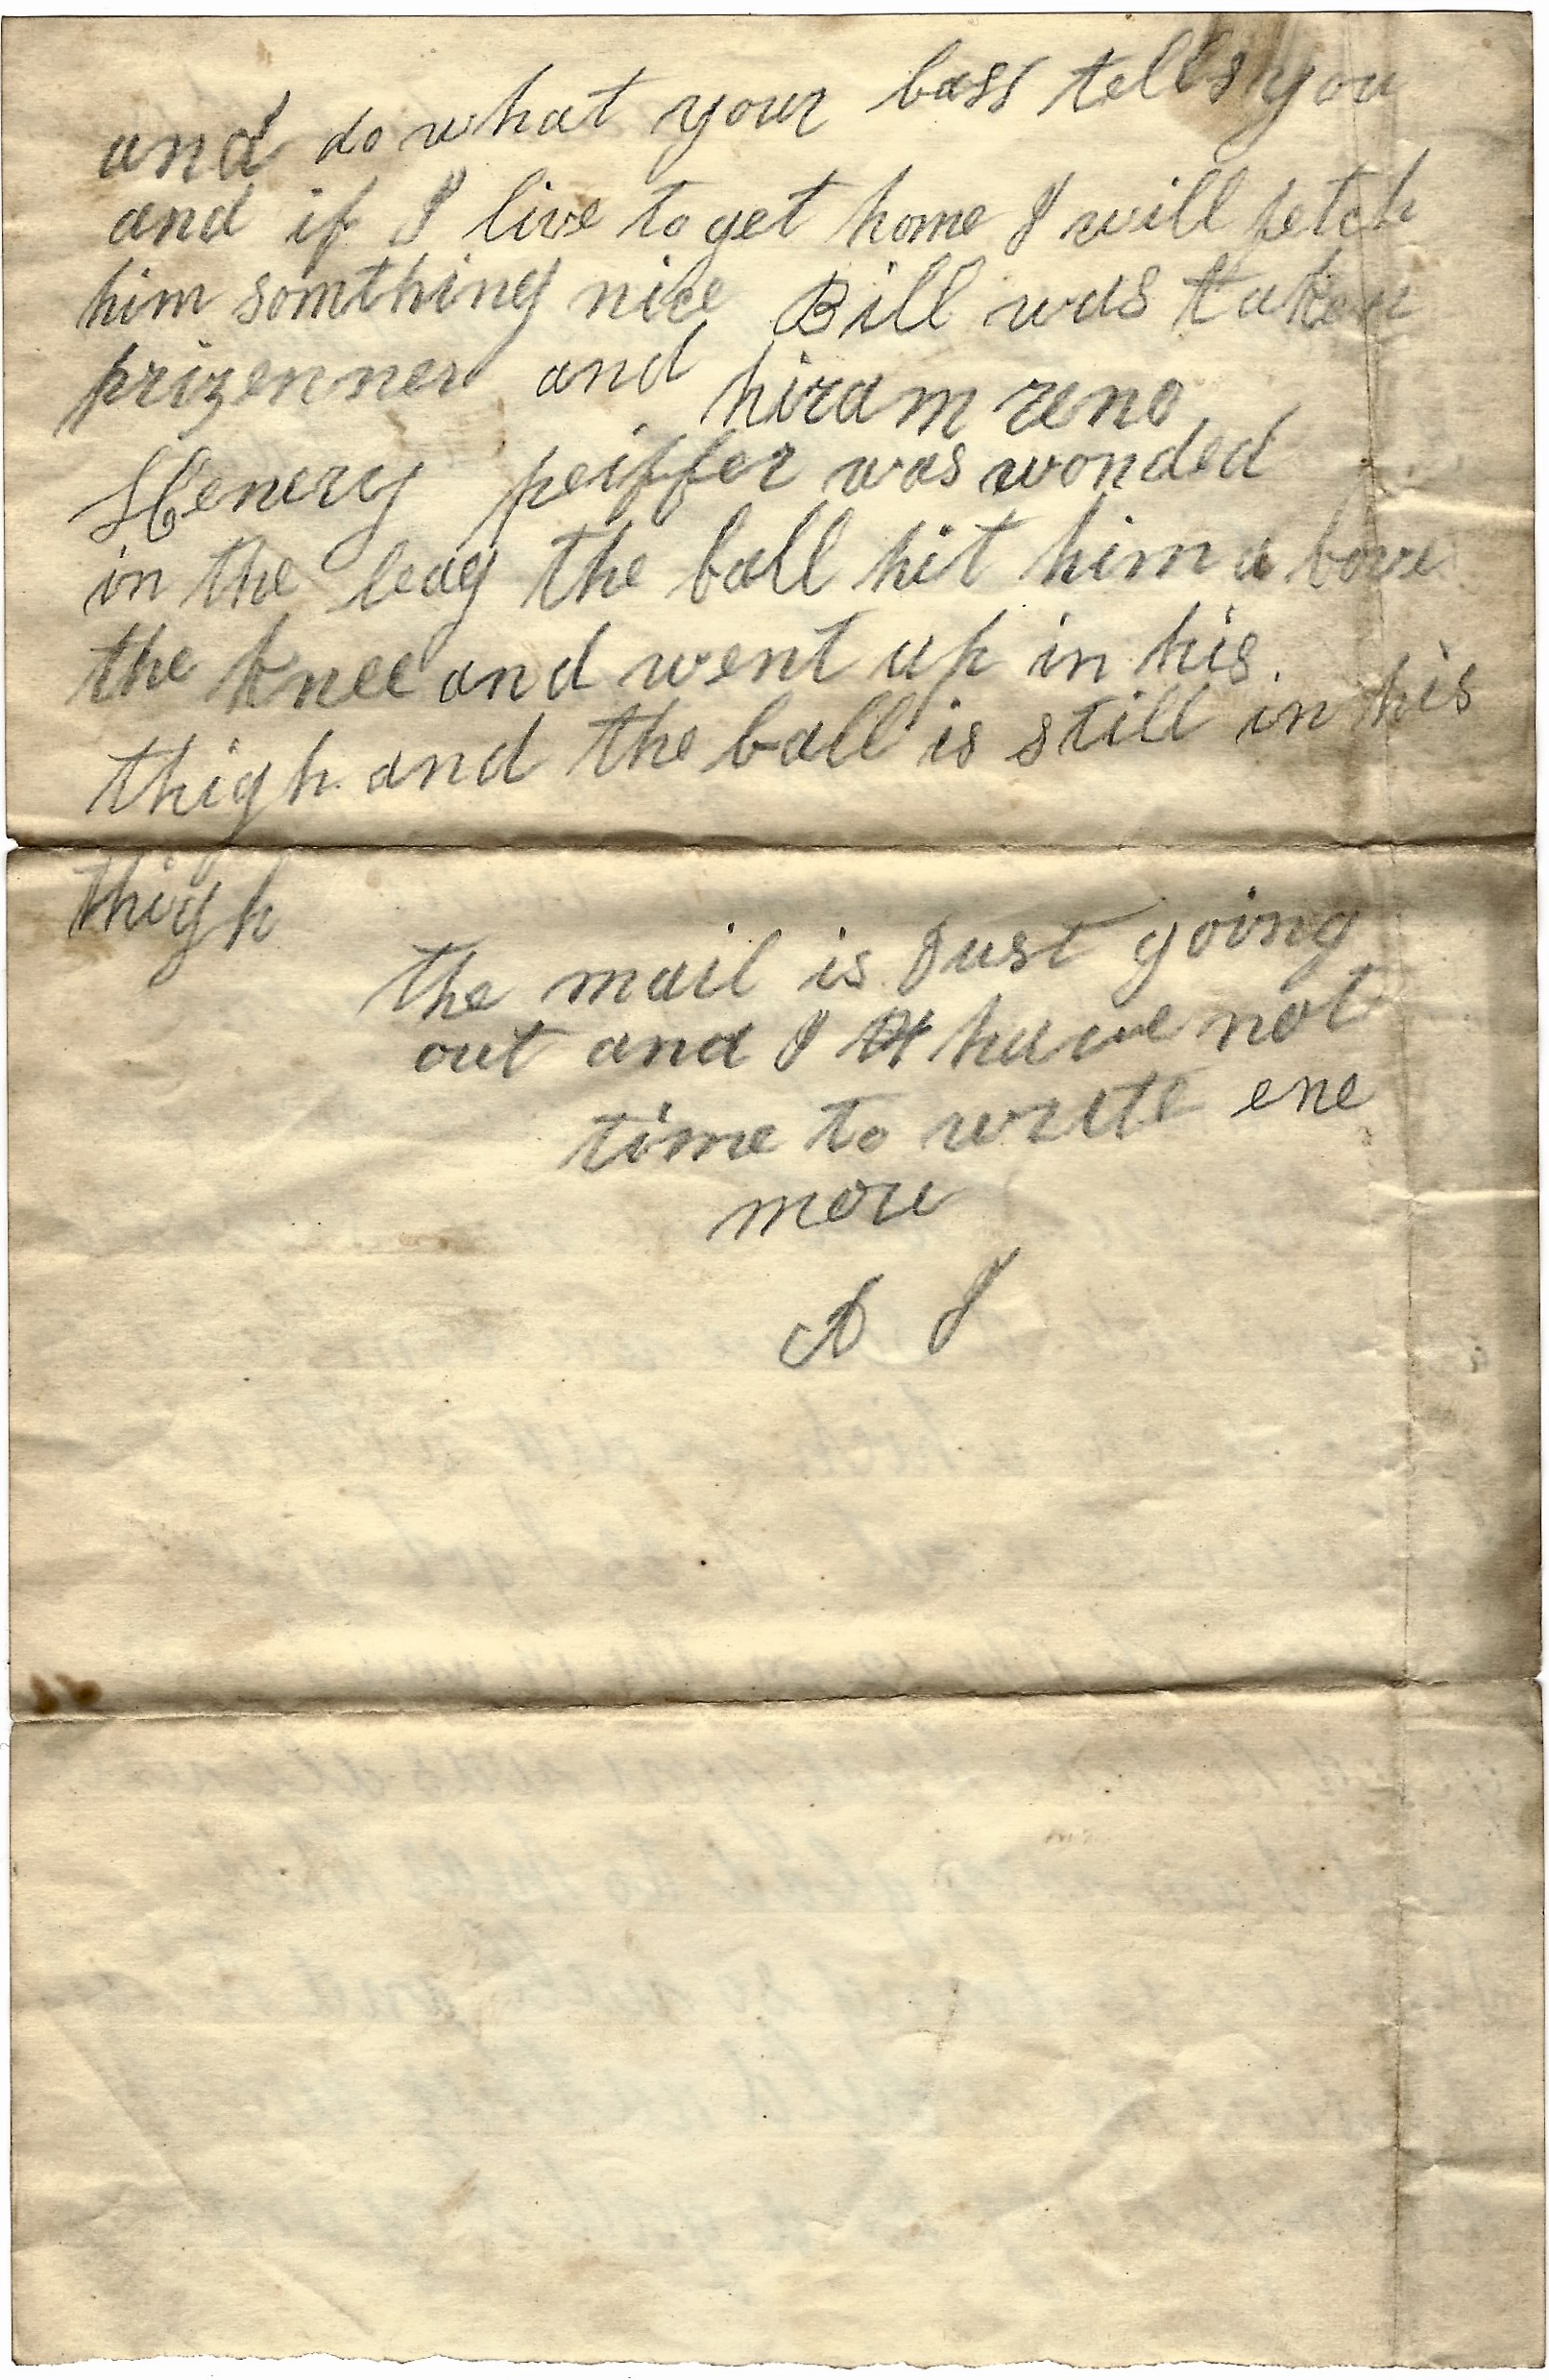 and do what your boss tells you
and if I live to get home I will fetch
him somthing nice Bill was taken
prizenner and hiram reno
Henery peiffer was wonded
in the leag the ball hit him a bove
the knee and went up in his
thigh and the ball is still in his
thigh
the mail is Just going
out and I have not
time to write ene
more
A J